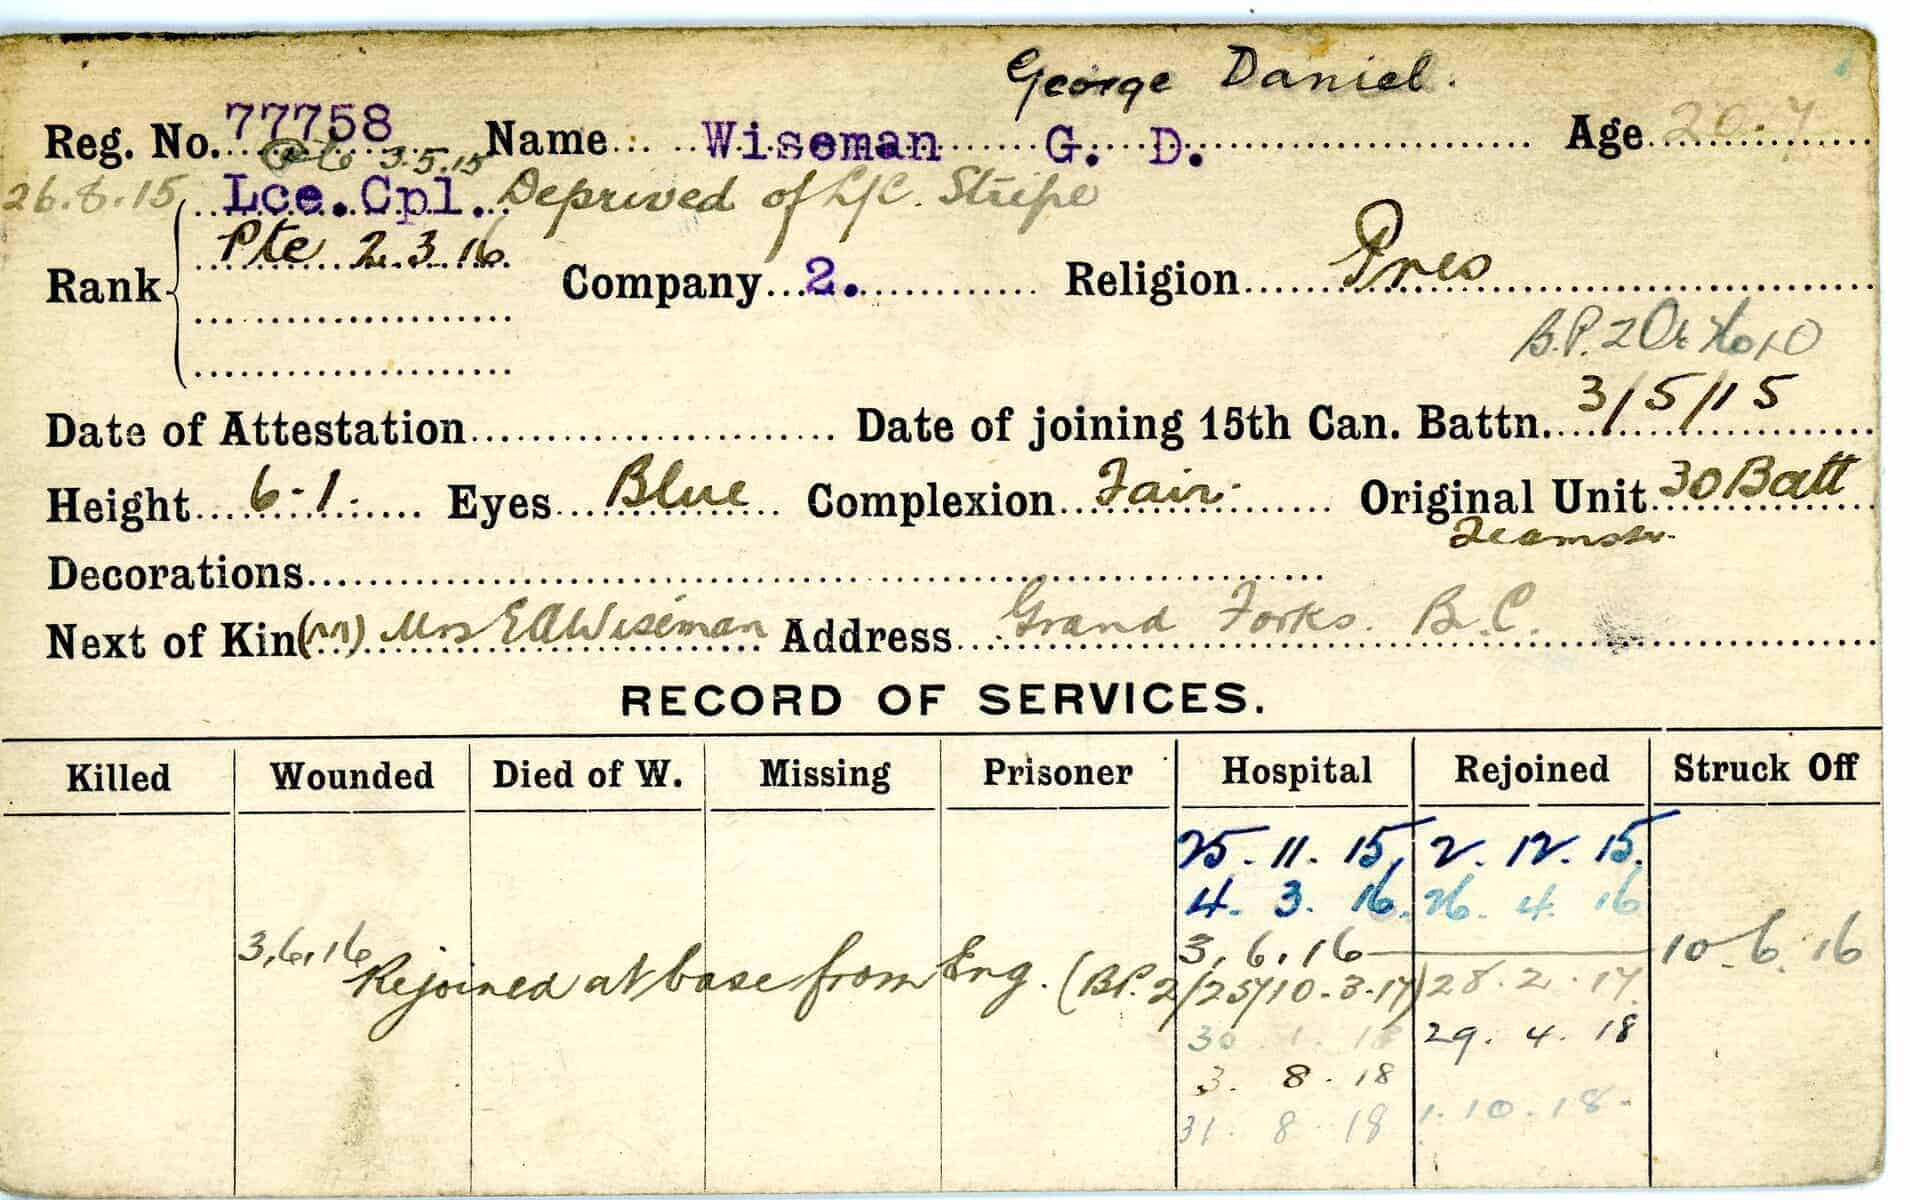 George Daniel.
Reg. No. 77758 Name Wiseman G. D. Age 20.7
3.5.15
26.8.15 Lce. Cpl. Deprived of L/C. Stripe
Pte 2.3.16
Rank Company 2. Religion Pres
B.P. 2
Date of Attestation Date of joining 15th Can. Battn. 3/5/15
Height 6-1. Eyes Blue Complexion Fair Original Unit 30 Batt
Teamster
Decorations
Next of Kin (M) Mrs E A Wiseman Address Grand Forks. B.C.
RECORD OF SERVICES.
Killed Wounded Died of W. Missing Prisoner Hospital Rejoined Struck Off
25. 11. 15, 2. 12. 15.
4. 3. 16. 26. 4. 16
3,6,16 3,6,16 10.6.16
Rejoined at base from Eng. (BP. 2/25/10-3-17) 28.2.17.
30 1. 18 29. 4. 18
3. 8. 18
31. 8. 18 1.10.18.